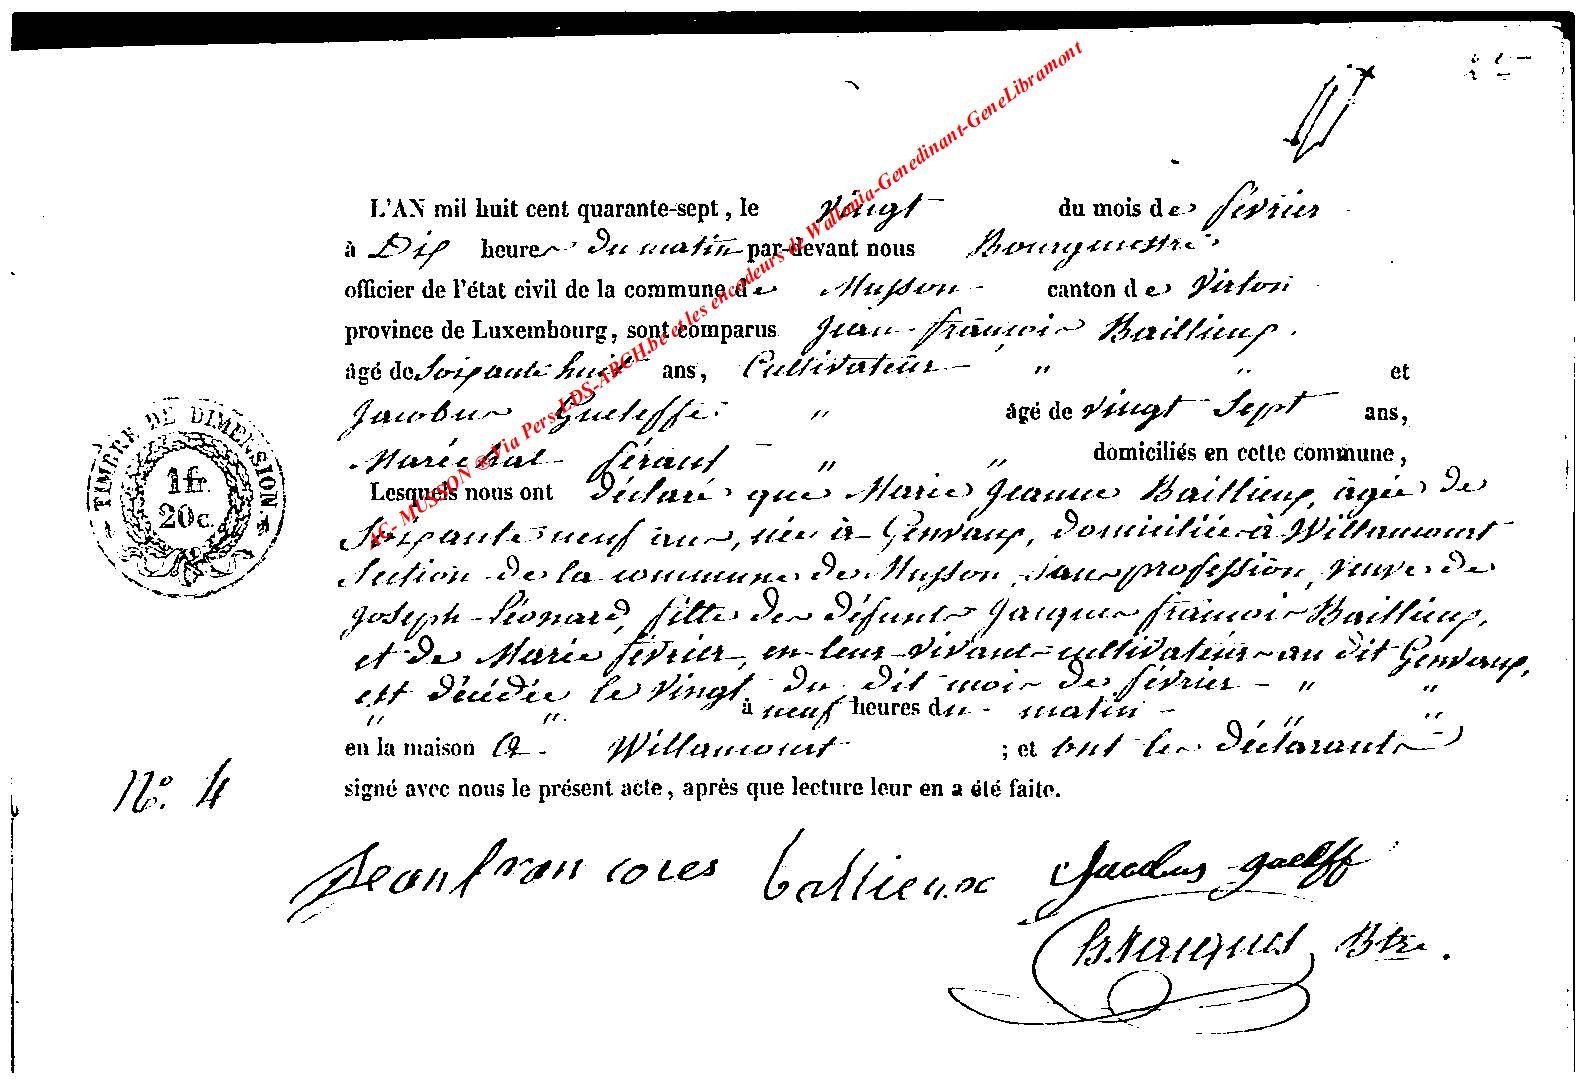 L'AN mil huit cent quarante-sept, le Vingt du mois de février
à Dix heures du matin par-devant nous Bourgmestre
officier de l'état civil de la commune de Musson canton de Virton
province de Luxembourg, sont comparus Jean françois Baillieux.
âgé de Soixante huit ans, Cultivateur " " et
Jacobus Gueleffe " âgé de vingt Sept ans,
Maréchal férant " " domiciliés en cette commune,
Lesquels nous ont déclaré que Marie Jeanne Baillieux, âgée de
Soixante neuf ans, née à Genvaux, domiciliée à Willancourt
Section de la commune de Musson, sans profession, veuve de
Joseph Léonard, fille des défunts Jacques françois Baillieux,
et de Marie février, en leur vivant cultivateurs au dit Genvaux,
est décédée le Vingt du dit mois de février " "
" " à neuf heures du matin " "
en la maison à Willancourt ; et ont les déclarants
signé avec nous le présent acte, après que lecture leur en a été faite.
TIMBRE DE DIMENSION
1 fr.
20 c.
N°. 4
Jean francoies ballieux Jacobus guelff
Btre.
AC- MUSSON ® Via Pers-LDS-ARCH.be et les encodeurs de Wallonia-Genedinant-GeneLibramont